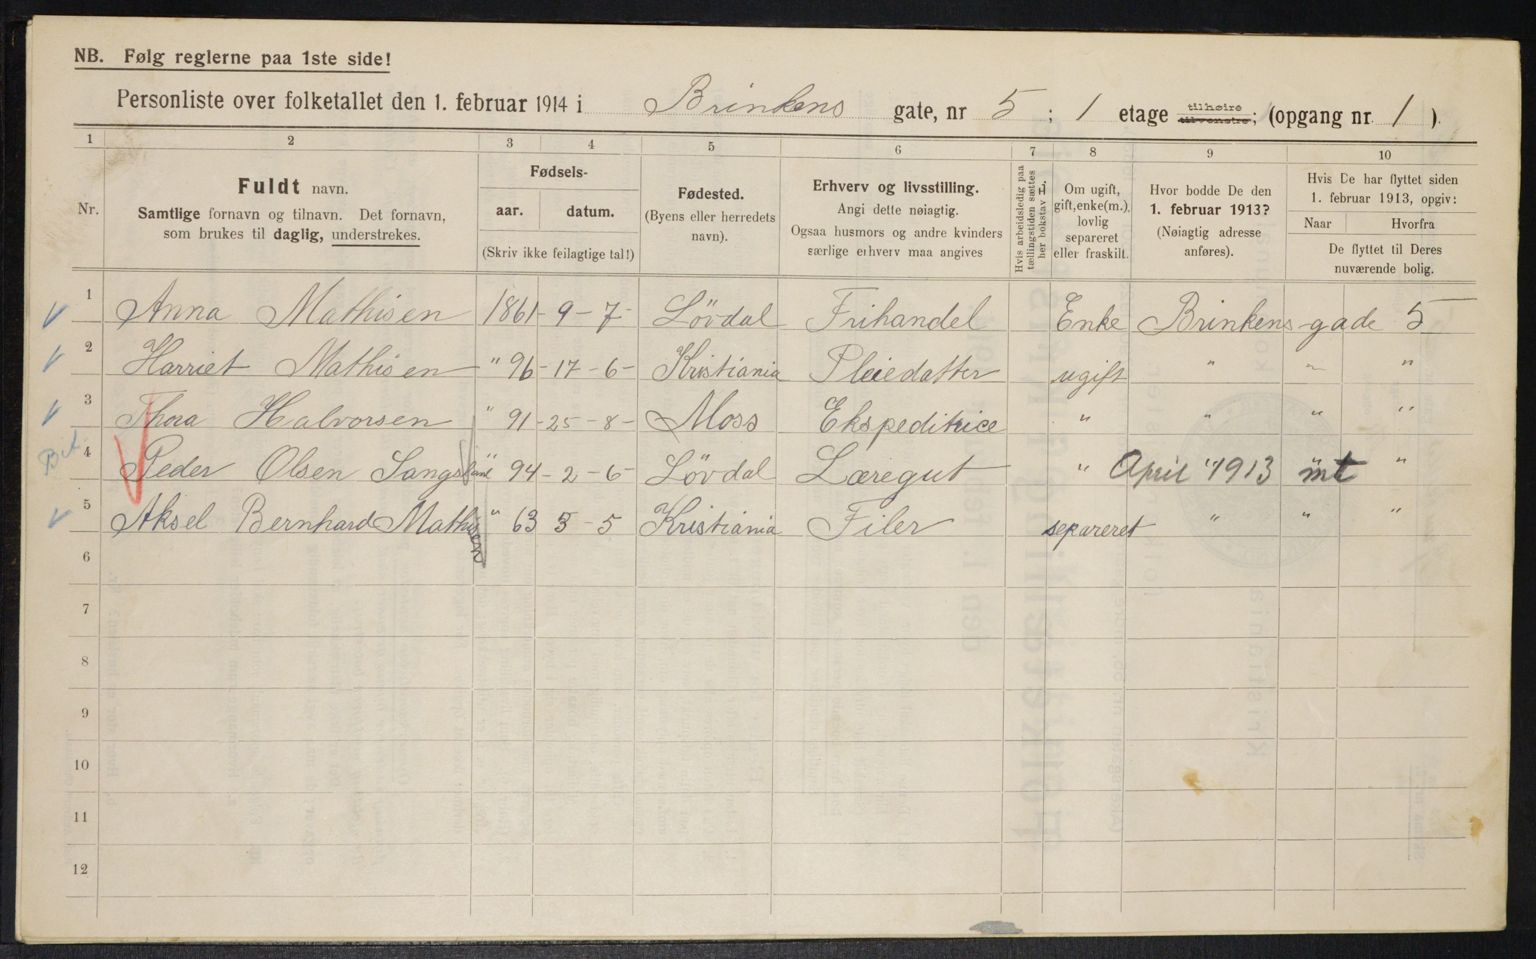 NB. Følg reglerne paa 1ste side!
Personliste over folketallet den 1. februar 1914 i Brinkens gate, nr 5 ; 1 etage tilhøire tilvenstre; (opgang nr. 1 ).
1 2 3 4 5 6 7 8 9 10
Nr.
Fuldt navn.
Samtlige fornavn og tilnavn. Det fornavn,
som brukes til daglig, understrekes.
Fødsels-
aar. datum.
(Skriv ikke feilagtige tal!)
Fødested.
(Byens eller herredets
navn).
Erhverv og livsstilling.
Angi dette nøiagtig.
Ogsaa husmors og andre kvinders
særlige erhverv maa angives
Hvis arbeidsledig paa
tællingstiden sættes
her bokstav L.
Om ugift,
gift, enke(m.),
lovlig
separeret
eller fraskilt.
Hvor bodde De den
1. februar 1913?
(Nøiagtig adresse
anføres).
Hvis De har flyttet siden
1. februar 1913, opgiv:
Naar Hvorfra
De flyttet til Deres
nuværende bolig.
1 Anna Mathisen 1861 - 9 - 7 - Lövdal Frihandel Enke Brinkens-gade 5
2 Harriet Mathisen " 96 - 17 - 6 - Kristiania Pleiedatter ugift " " "
3 Thora Halvorsen " 91 - 25 - 8 - Moss Ekspeditrice " " " "
4 Peder Olsen " 94 - 2 - 6 - Lövdal Læregut " April 1913 mt "
5 Aksel Bernhard Mathisen " 63 3 - 5 Kristiania Filer separeret " " "
6
7
8
9
10
11
12